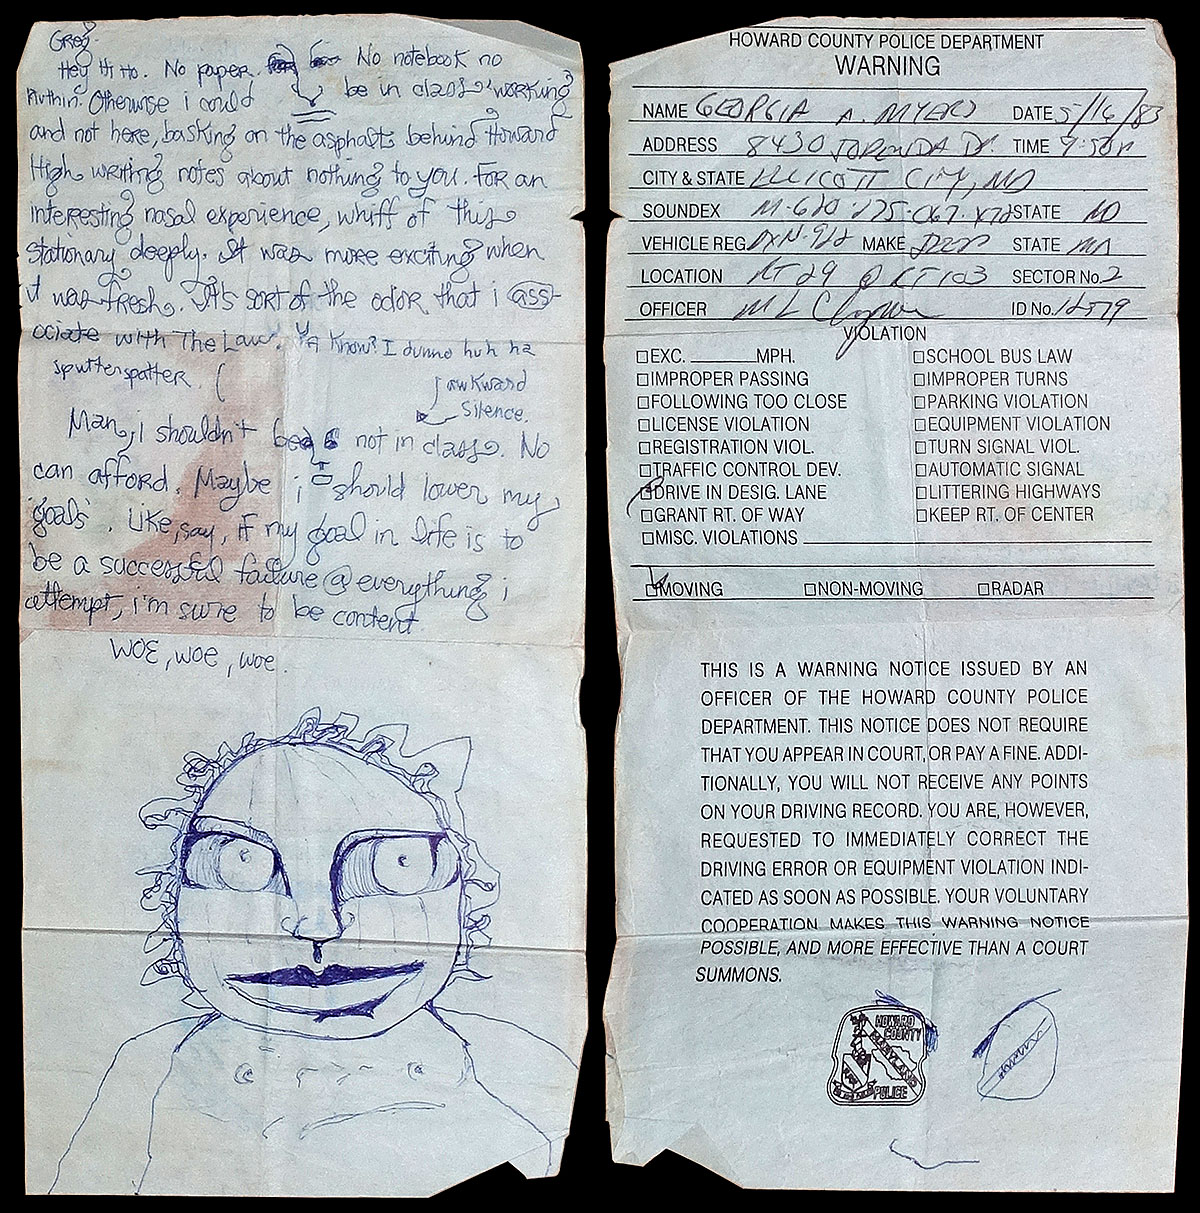 Greg-
Hey Hi Ho. No paper. No notebook no
nuthin. Otherwise i could be in class 'working'
and not here, basking on the asphalt behind Howard
High writing notes about nothing to you. For an
interesting nasal experience, whiff of this
stationary deeply. It was more exciting when
it was fresh. It's sort of the odor that i ass-
ociate with The Law. Ya know? I dunno huh ha
sputterspatter. (
awkward
Silence.
Man, i shouldn't be not in class. No
can afford. Maybe i should lower my
'goals'. Like, say, if my goal in life is to
be a successful failure @ everything i
attempt, i'm sure to be content.
WOE, WOE, WOE.
HOWARD COUNTY POLICE DEPARTMENT
WARNING
NAME GEORGIA A. MYERS DATE 5/16/83
ADDRESS 8430 DR TIME 7:50
CITY & STATE ELLICOTT CITY, MD
SOUNDEX STATE MD
VEHICLE REG MAKE JEEP STATE MD
LOCATION RT 29 @ RT 103 SECTOR No. 2
OFFICER M L ID No.
VIOLATION
EXC. ______ MPH.
IMPROPER PASSING
FOLLOWING TOO CLOSE
LICENSE VIOLATION
REGISTRATION VIOL.
TRAFFIC CONTROL DEV.
DRIVE IN DESIG. LANE
GRANT RT. OF WAY
MISC. VIOLATIONS
SCHOOL BUS LAW
IMPROPER TURNS
PARKING VIOLATION
EQUIPMENT VIOLATION
TURN SIGNAL VIOL.
AUTOMATIC SIGNAL
LITTERING HIGHWAYS
KEEP RT. OF CENTER
MOVING NON-MOVING RADAR
THIS IS A WARNING NOTICE ISSUED BY AN
OFFICER OF THE HOWARD COUNTY POLICE
DEPARTMENT. THIS NOTICE DOES NOT REQUIRE
THAT YOU APPEAR IN COURT, OR PAY A FINE. ADDI-
TIONALLY, YOU WILL NOT RECEIVE ANY POINTS
ON YOUR DRIVING RECORD. YOU ARE, HOWEVER,
REQUESTED TO IMMEDIATELY CORRECT THE
DRIVING ERROR OR EQUIPMENT VIOLATION INDI-
CATED AS SOON AS POSSIBLE. YOUR VOLUNTARY
COOPERATION MAKES THIS WARNING NOTICE
POSSIBLE, AND MORE EFFECTIVE THAN A COURT
SUMMONS.
HOWARD
COUNTY
MARYLAND
POLICE